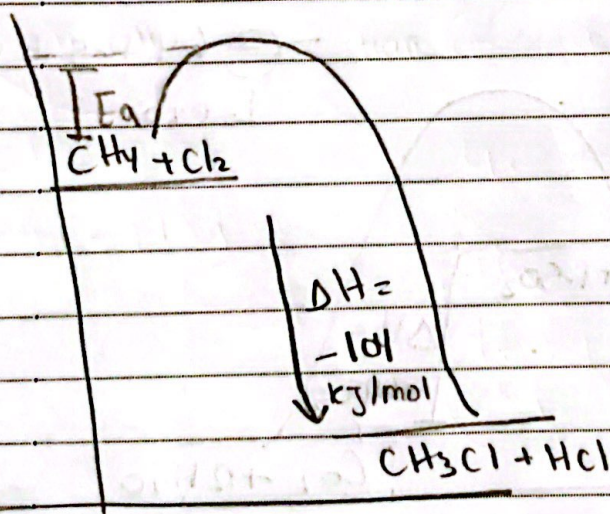 Ea
CH4 + Cl2
ΔH=
-101
kJ/mol
CH3Cl + HCl